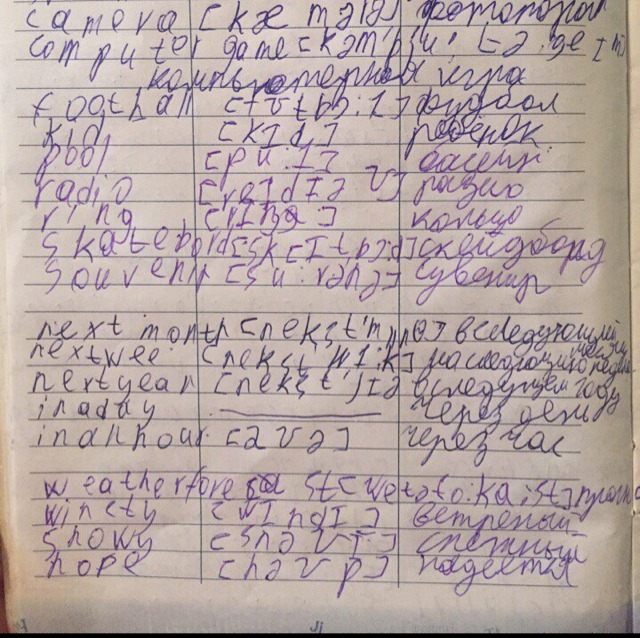 camera [kæ mərə] фотоаппарат
computor game [kəm'pju: tə: geɪm]
компьютерная игра
football [fʊtbɔ:l] футбол
kid [kɪd] ребёнок
pool [pu:l] бассейн
radio [reɪdɪəʊ] радио
ring кольцо
skateboard скейдборд
souvenir [su:vənɪə] сувенир
next month [nekst'mʌnθ] в следующий
next wee [nekst'wi:k]
next year [nekst'jɪə в следущем году
in a day через день
in an hour [aʊə] через час
weather forecast
windy [wɪndɪ] ветреный
snowy [snəʊɪ] снежный
hope [həʊp] надеется